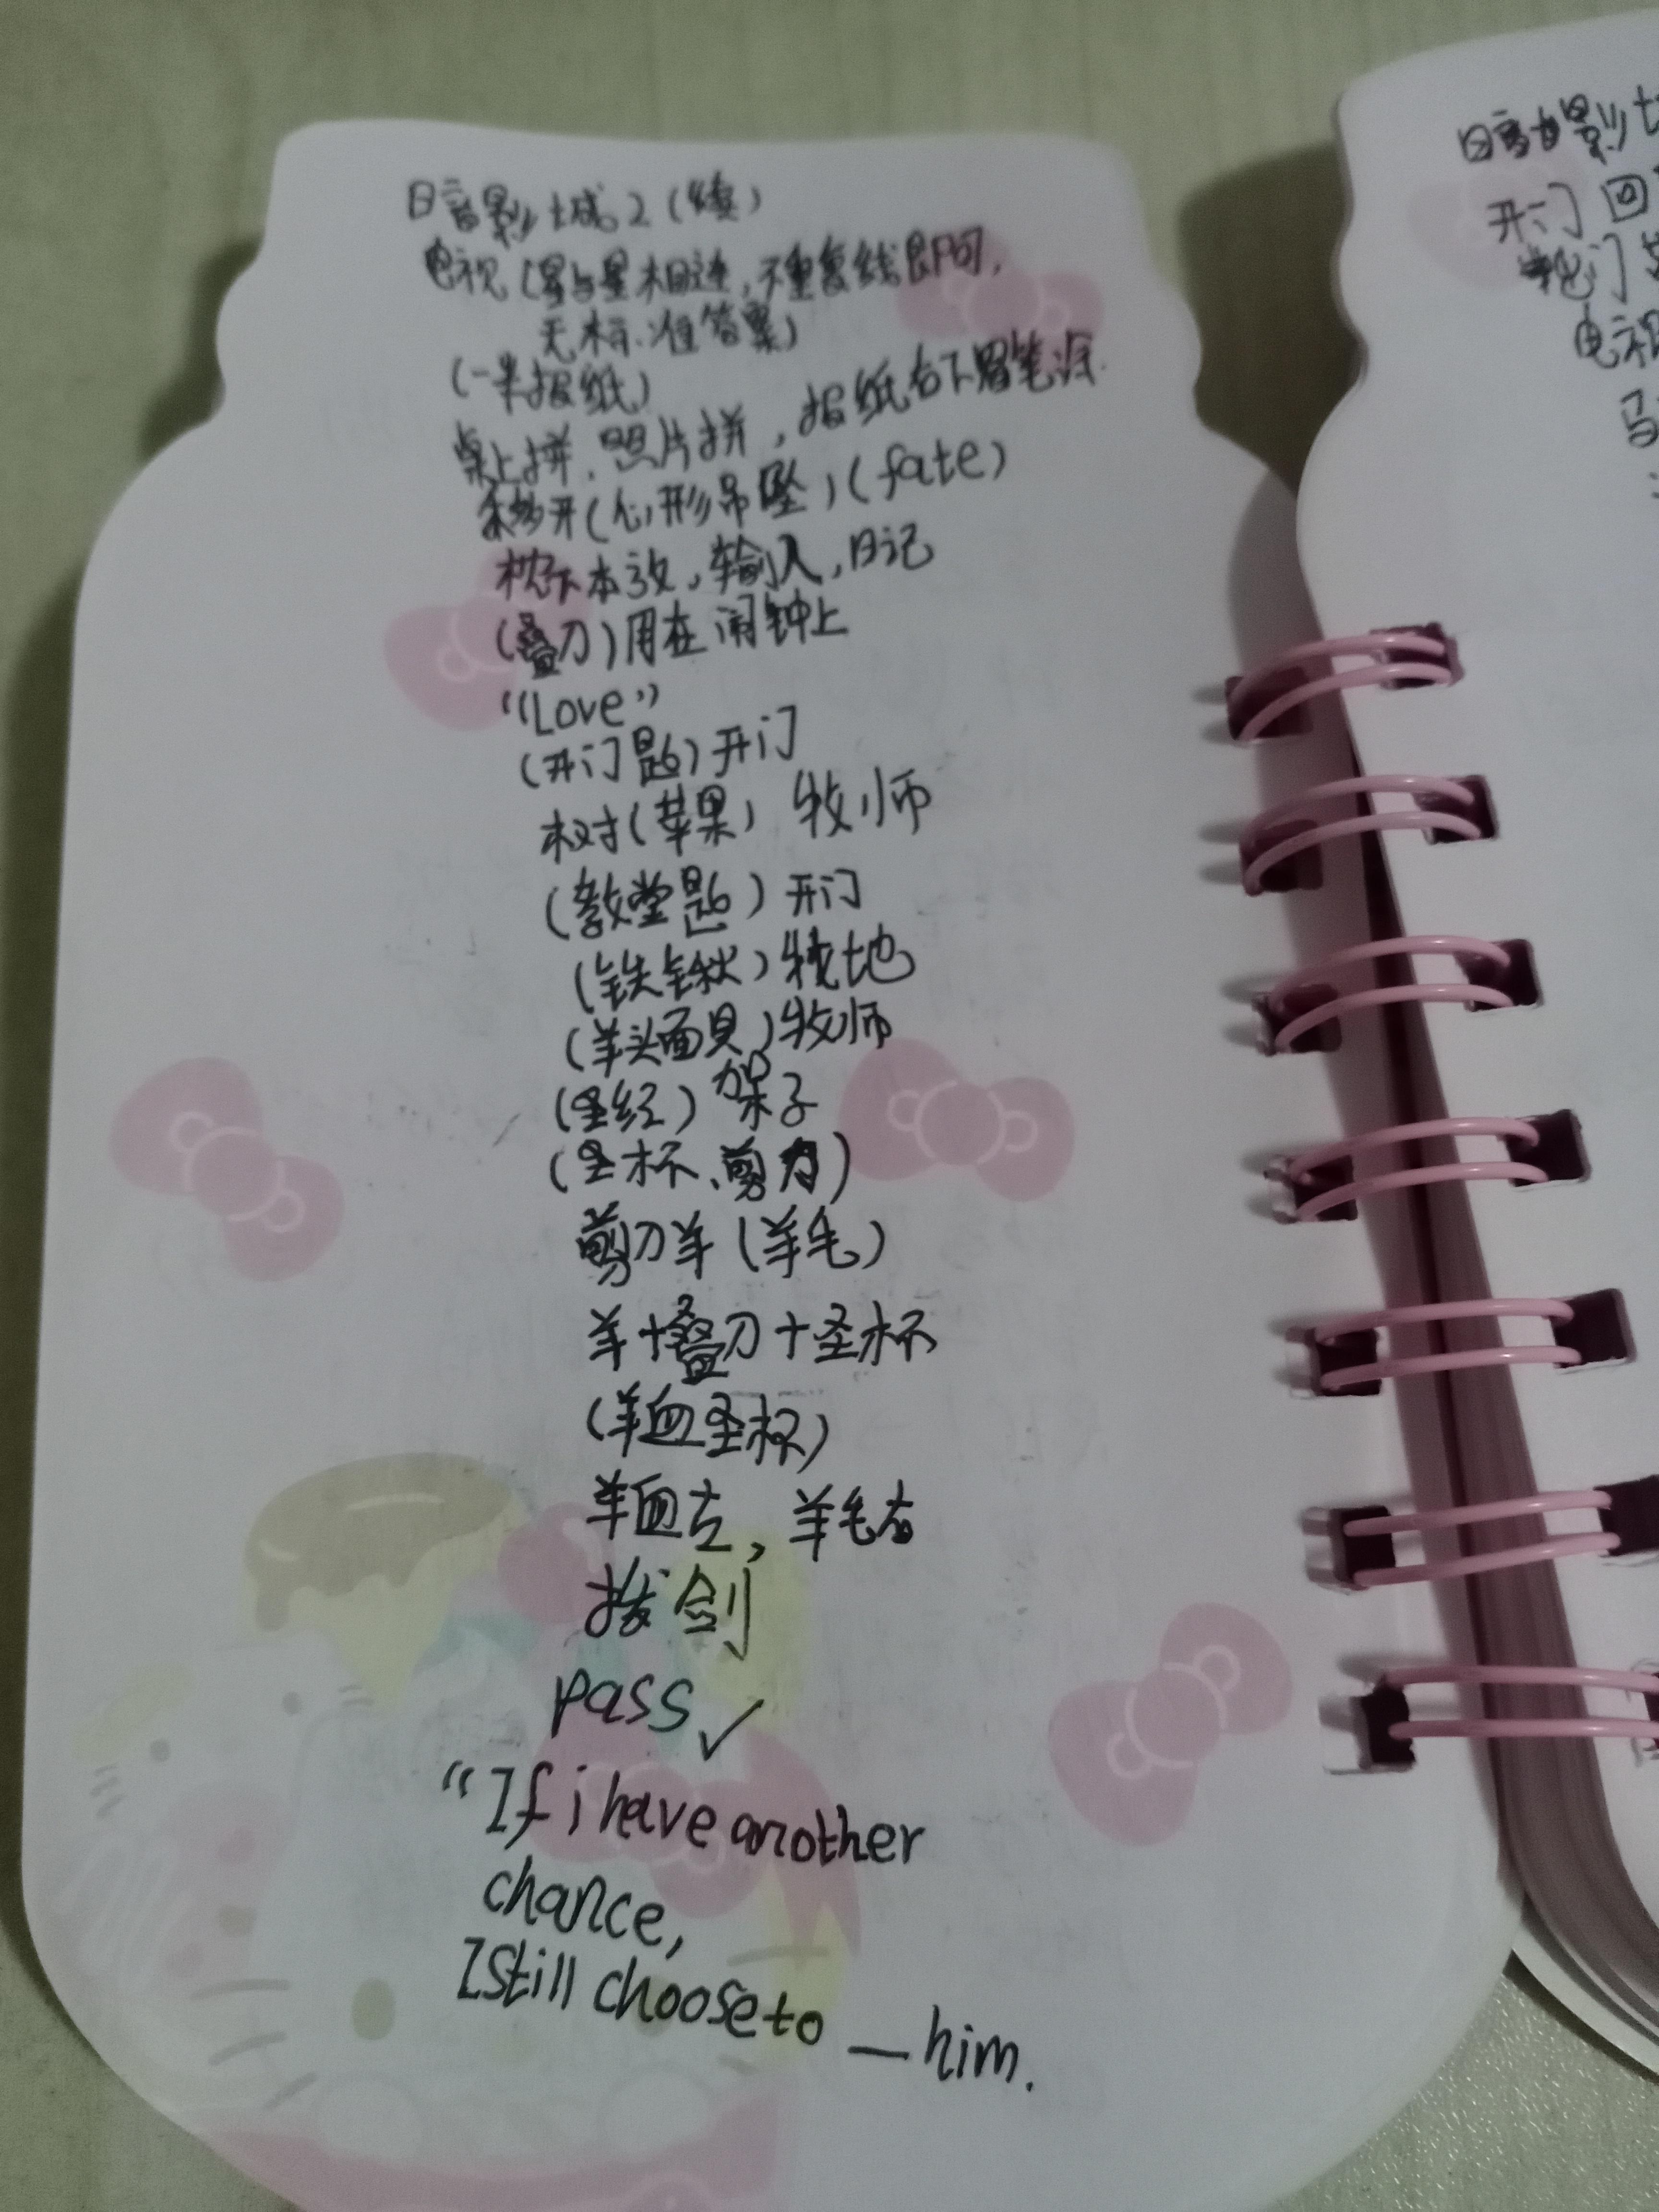 暗影城2(续)
电视(星与星相连,不重复线即可,
无标准答案)
(一半报纸)
桌上拼,照片拼,报纸右下眉笔涂
移开(心形吊坠)(fate)
枕下本放,输入,日记
(叠刀)用在闹钟上
“Love”
(开门匙)开门
树(苹果) 牧师
(教堂匙)开门
(铁锹)牧地
(羊头面具)牧师
(圣经)架子
(圣杯、剪刀)
剪刀羊(羊毛)
羊+叠刀+圣杯
(羊血圣杯)
羊血左,羊毛右
拔剑
pass✓
“If i have another
chance,
I still choose to __ him.
暗影城
开门回
门
电视
马